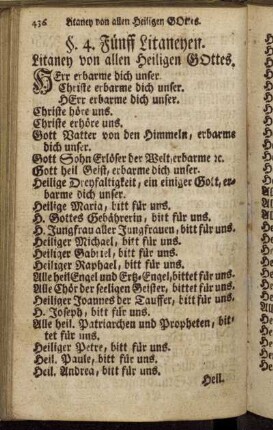 436 Litaney von allen Heiligen GOttes.
§. 4. Fünff Litaneyen.
Litaney von allen Heiligen GOttes.
HErr erbarme dich unser.
Christe erbarme dich unser.
HErr erbarme dich unser.
Christe höre uns.
Christe erhöre uns.
Gott Vatter von den Himmeln, erbarme
dich unser.
Gott Sohn Erlöser der Welt, erbarme ꝛc.
Gott heil Geist, erbarme dich unser.
Heilige Dreyfaltigkeit, ein einiger Gott, er-
barme dich unser.
Heilige Maria, bitt für uns.
H. Gottes Gebährerin, bitt für uns.
H. Jungfrau aller Jungfrauen, bitt für uns.
Heiliger Michael, bitt für uns.
Heiliger Gabriel, bitt für uns.
Heiliger Raphael, bitt für uns.
Alle heil Engel und Ertz-Engel, bittet für uns.
Alle Chör der seeligen Geister, bittet für uns.
Heiliger Joannes der Tauffer, bitt für uns.
H. Joseph, bitt für uns.
Alle heil. Patriarchen und Propheten, bit-
tet für uns.
Heiliger Petre, bitt für uns.
Heil. Paule, bitt für uns.
Heil. Andrea, bitt für uns.
Heil.